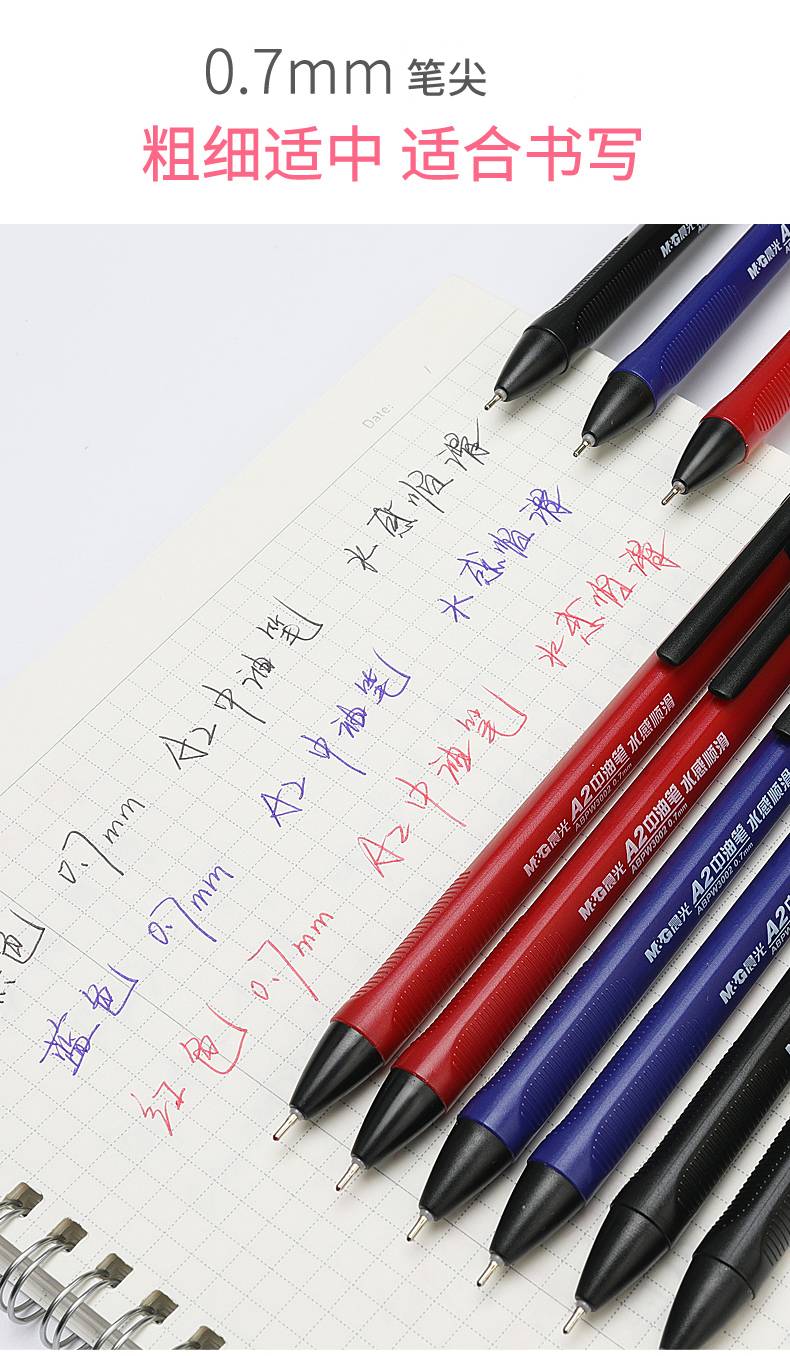 0.7mm 笔尖
粗细适中 适合书写
M&G晨光
M&G晨光
Date:
色 0.7mm A2中油笔 水感顺滑
蓝色 0.7mm A2中油笔 水感顺滑
红色 0.7mm A2中油笔 水感顺滑
M&G晨光 A2中油笔 水感顺滑
ABPW3002 0.7mm
M&G晨光 A2中油笔 水感顺滑
ABPW3002 0.7mm
M&G晨光 A2中油笔 水感顺滑
ABPW3002 0.7mm
M&G晨光 A2中油